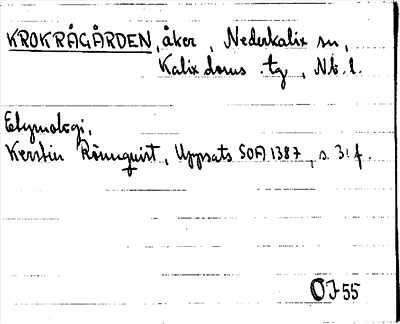 KROKRÅGÅRDEN, åker, Nederkalix sn,
Kalix doms. tg, Nb. l.
Etymologi,
Kerstin Rönnquist, Uppsats SOFI 1387, s. 31 f.
OJ 55